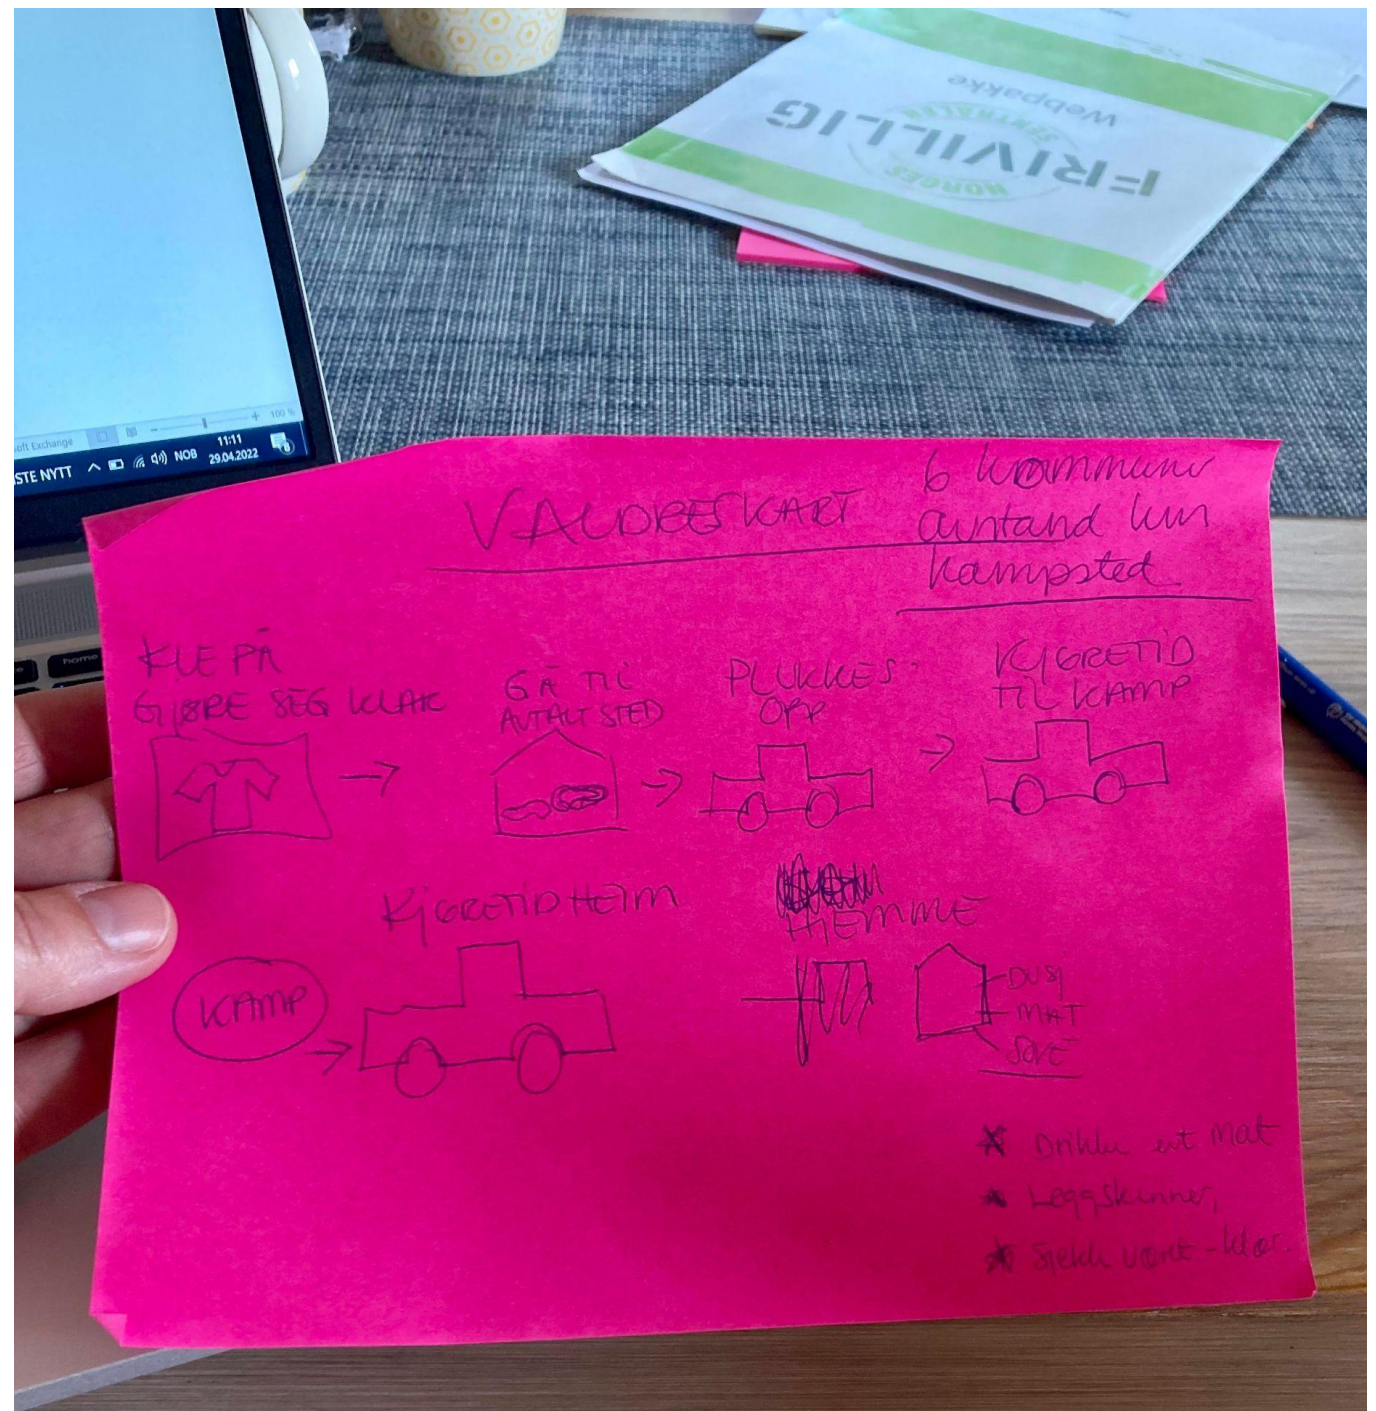 Webpakke
FRIVILLIG
SENTRALER
NORGES
oft Exchange
100 %
STE NYTT
NOB
11:11
29.04.2022
home
VALDRESKART
6 kommuner
avstand km
kampsted
KLE PÅ
GJØRE SEG KLAR
GÅ TIL
AVTALT STED
PLUKKES
OPP
KJØRETID
TIL KAMP
KAMP
KJØRETID HEIM
HJEMME
DUSJ
MAT
SOVE
Drikke evt mat
Leggskinner,
Sjekk været - klær.